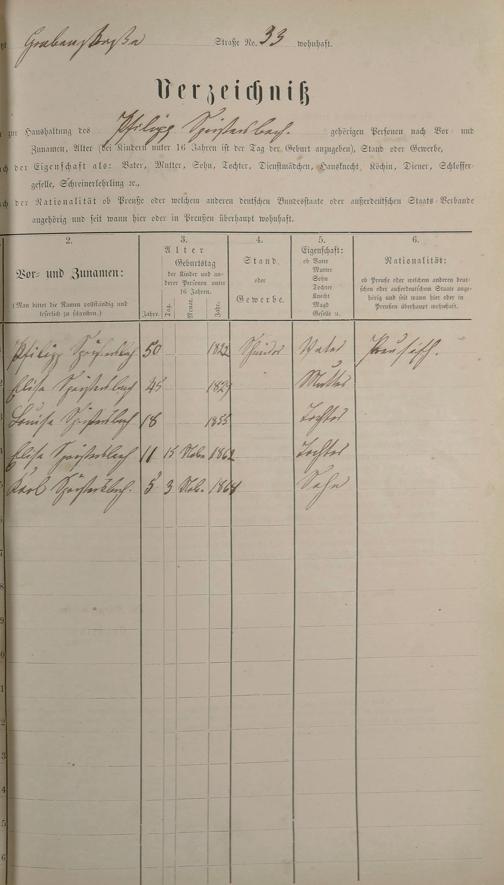 Grabenstraße Straße No. 33 wohnhaft.
Verzeichniß
zur Haushaltung des Philipp gehörigen Personen nach Vor- und
Zunamen, Alter (bei Kindern unter 16 Jahren ist der Tag der Geburt anzugeben), Stand oder Gewerbe,
der Eigenschaft als: Vater, Mutter, Sohn, Tochter, Dienstmädchen, Hausknecht, Köchin, Diener, Schlosser-
geselle, Schreinerlehrling ꝛc.,
der Nationalität ob Preuße oder welchem anderen deutschen Bundesstaate oder außerdeutschen Staats-Verbande
angehörig und seit wann hier oder in Preußen überhaupt wohnhaft.
2.
Vor- und Zunamen:
(Man bittet die Namen vollständig und
leserlich zu schreiben.)
3.
Alter
Geburtstag
der Kinder und an-
derer Personen unter
16 Jahren.
Jahre. Tag. Monat. Jahr.
4.
Stand
oder
Gewerbe.
5.
Eigenschaft:
ob Vater
Mutter
Sohn
Tochter
Knecht
Magd
Geselle u.
6.
Nationalität:
ob Preuße oder welchem anderen deut-
schen oder außerdeutschen Staate ange-
hörig und seit wann hier oder in
Preußen überhaupt wohnhaft.
Philipp 50 1822 Vater Preußisch.
Elise 45 Mutter
Louise 18 1855 Tochter
Elise 11 15 1862 Tochter
Karl 5 3 1868 Sohn